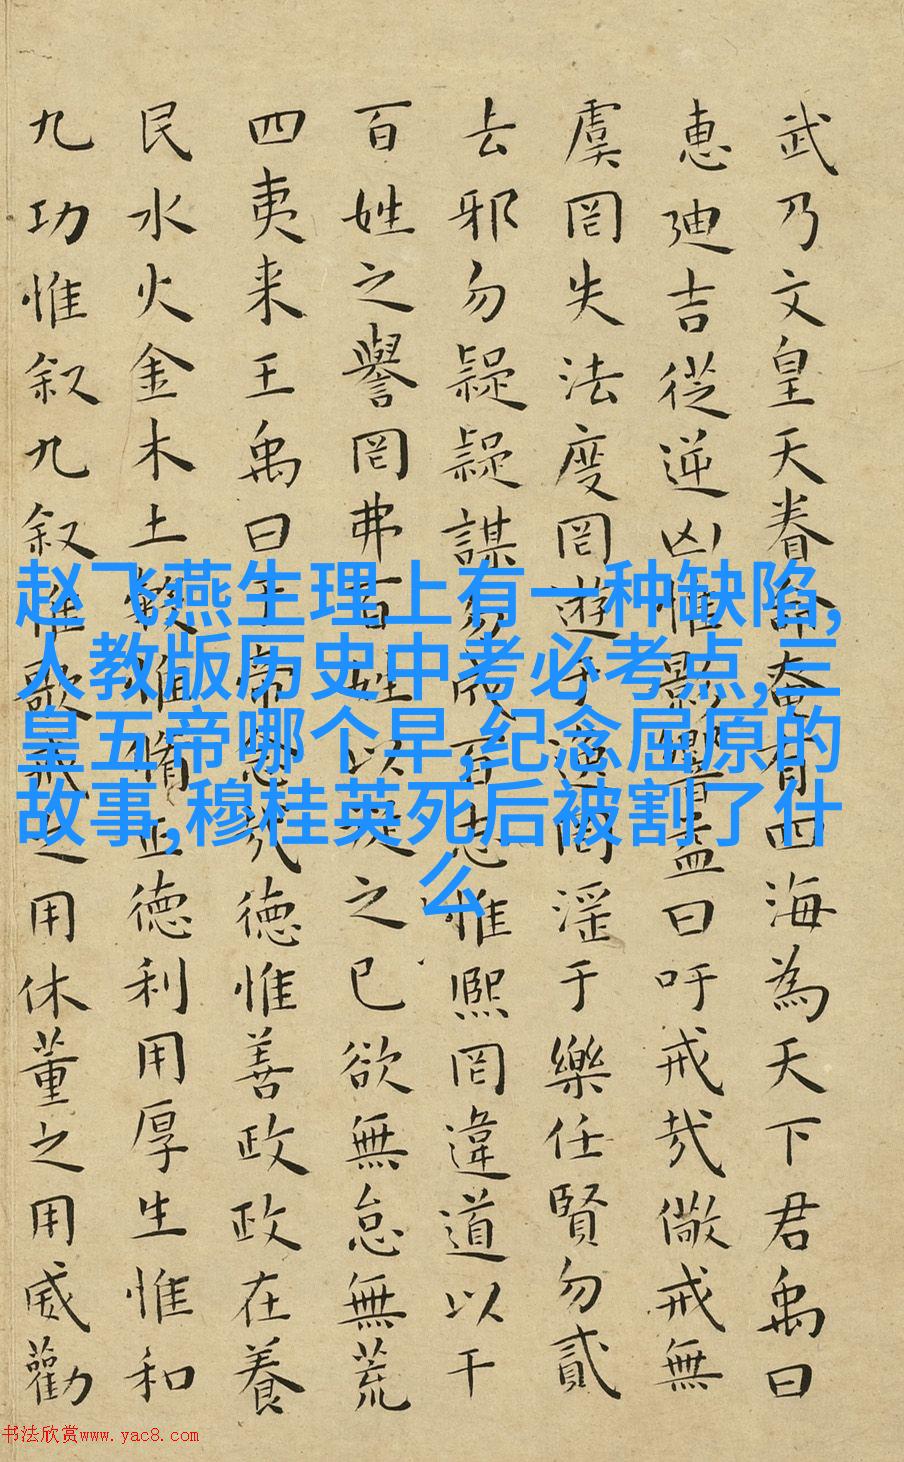 武乃文皇天眷命奄有四海為天下君禹曰
惠迪吉從逆凶惟影響益曰吁戒哉儆戒無
虞罔失法度罔遊于逸罔淫于樂任賢勿貳
去邪勿疑疑謀勿成百志惟熙罔違道以干
百姓之譽罔弗百姓以從之已欲無怠無荒
四夷来王禹曰於帝念哉德惟善政政在養
民水火金木土穀惟脩正德利用厚生惟和
九功惟叙九叙惟歌戒之用休董之用威勸
赵飞燕生理上有一种缺陷,
人教版历史中考必考点,三
皇五帝哪个早,纪念屈原的
故事,穆桂英死后被割了什
么
书法欣赏www.yac8.com